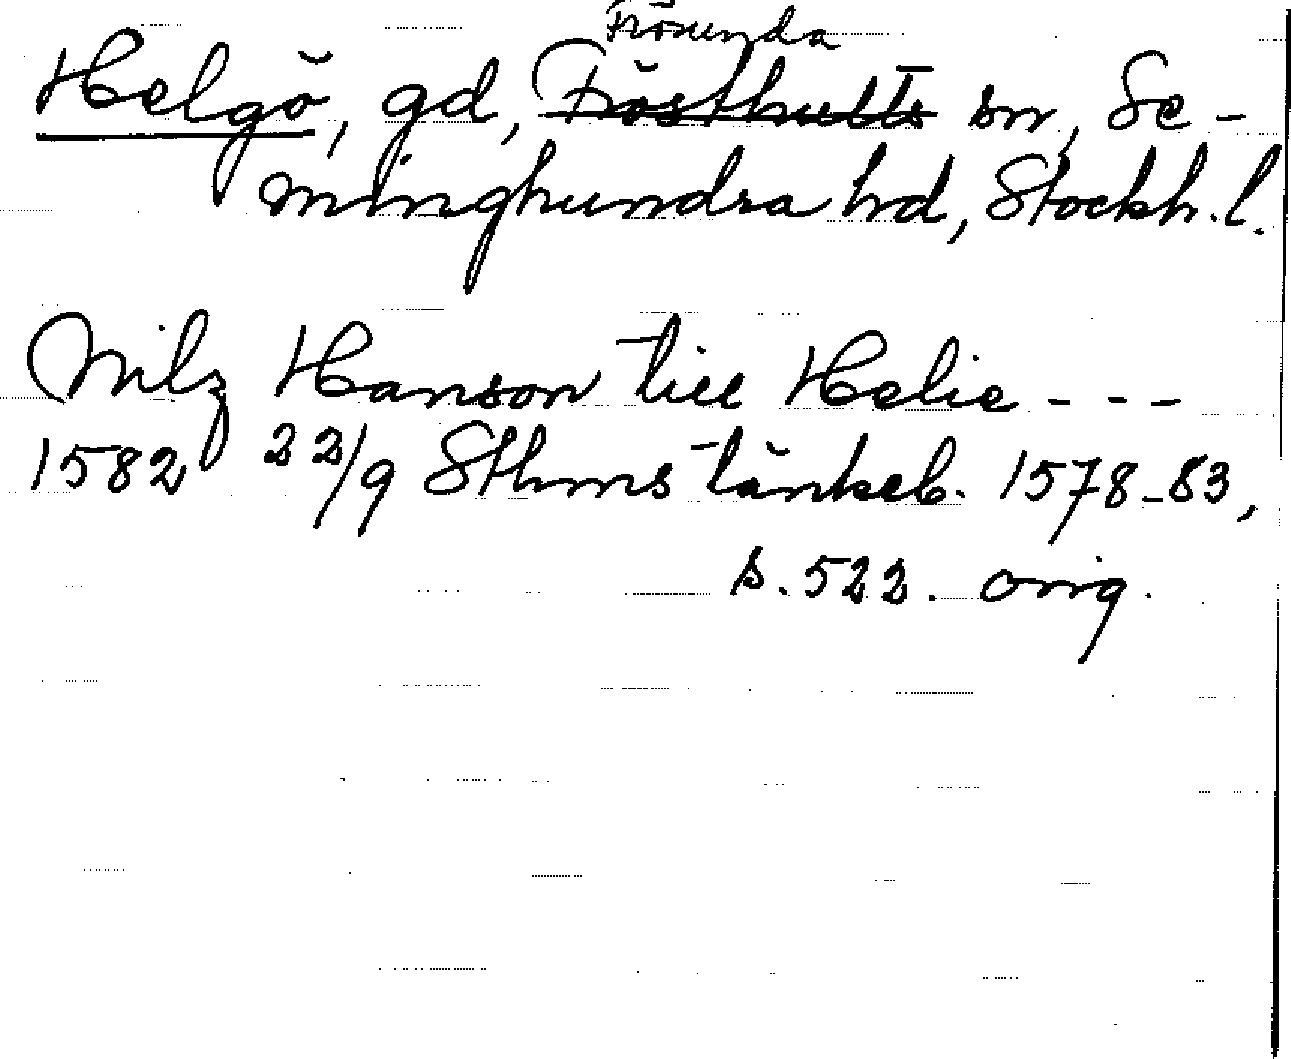 Frösunda
Helgö, gd, Frösthults sn, Se-
minghundra hd, Stockh. l.
Nilz Hanson till Helie - - -
1582 22/9 Sthms tänkeb. 1578-83,
s. 522. orig.